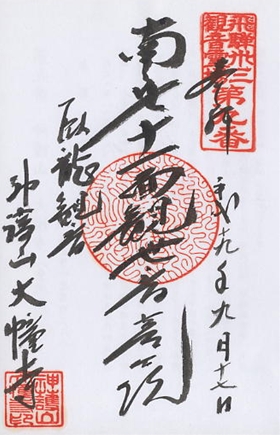 飛騨卅三第九番
観音霊場
奉拝
平成十九年九月十七日
南無十一面観世音菩薩
臥龍観音
神護山大幢寺